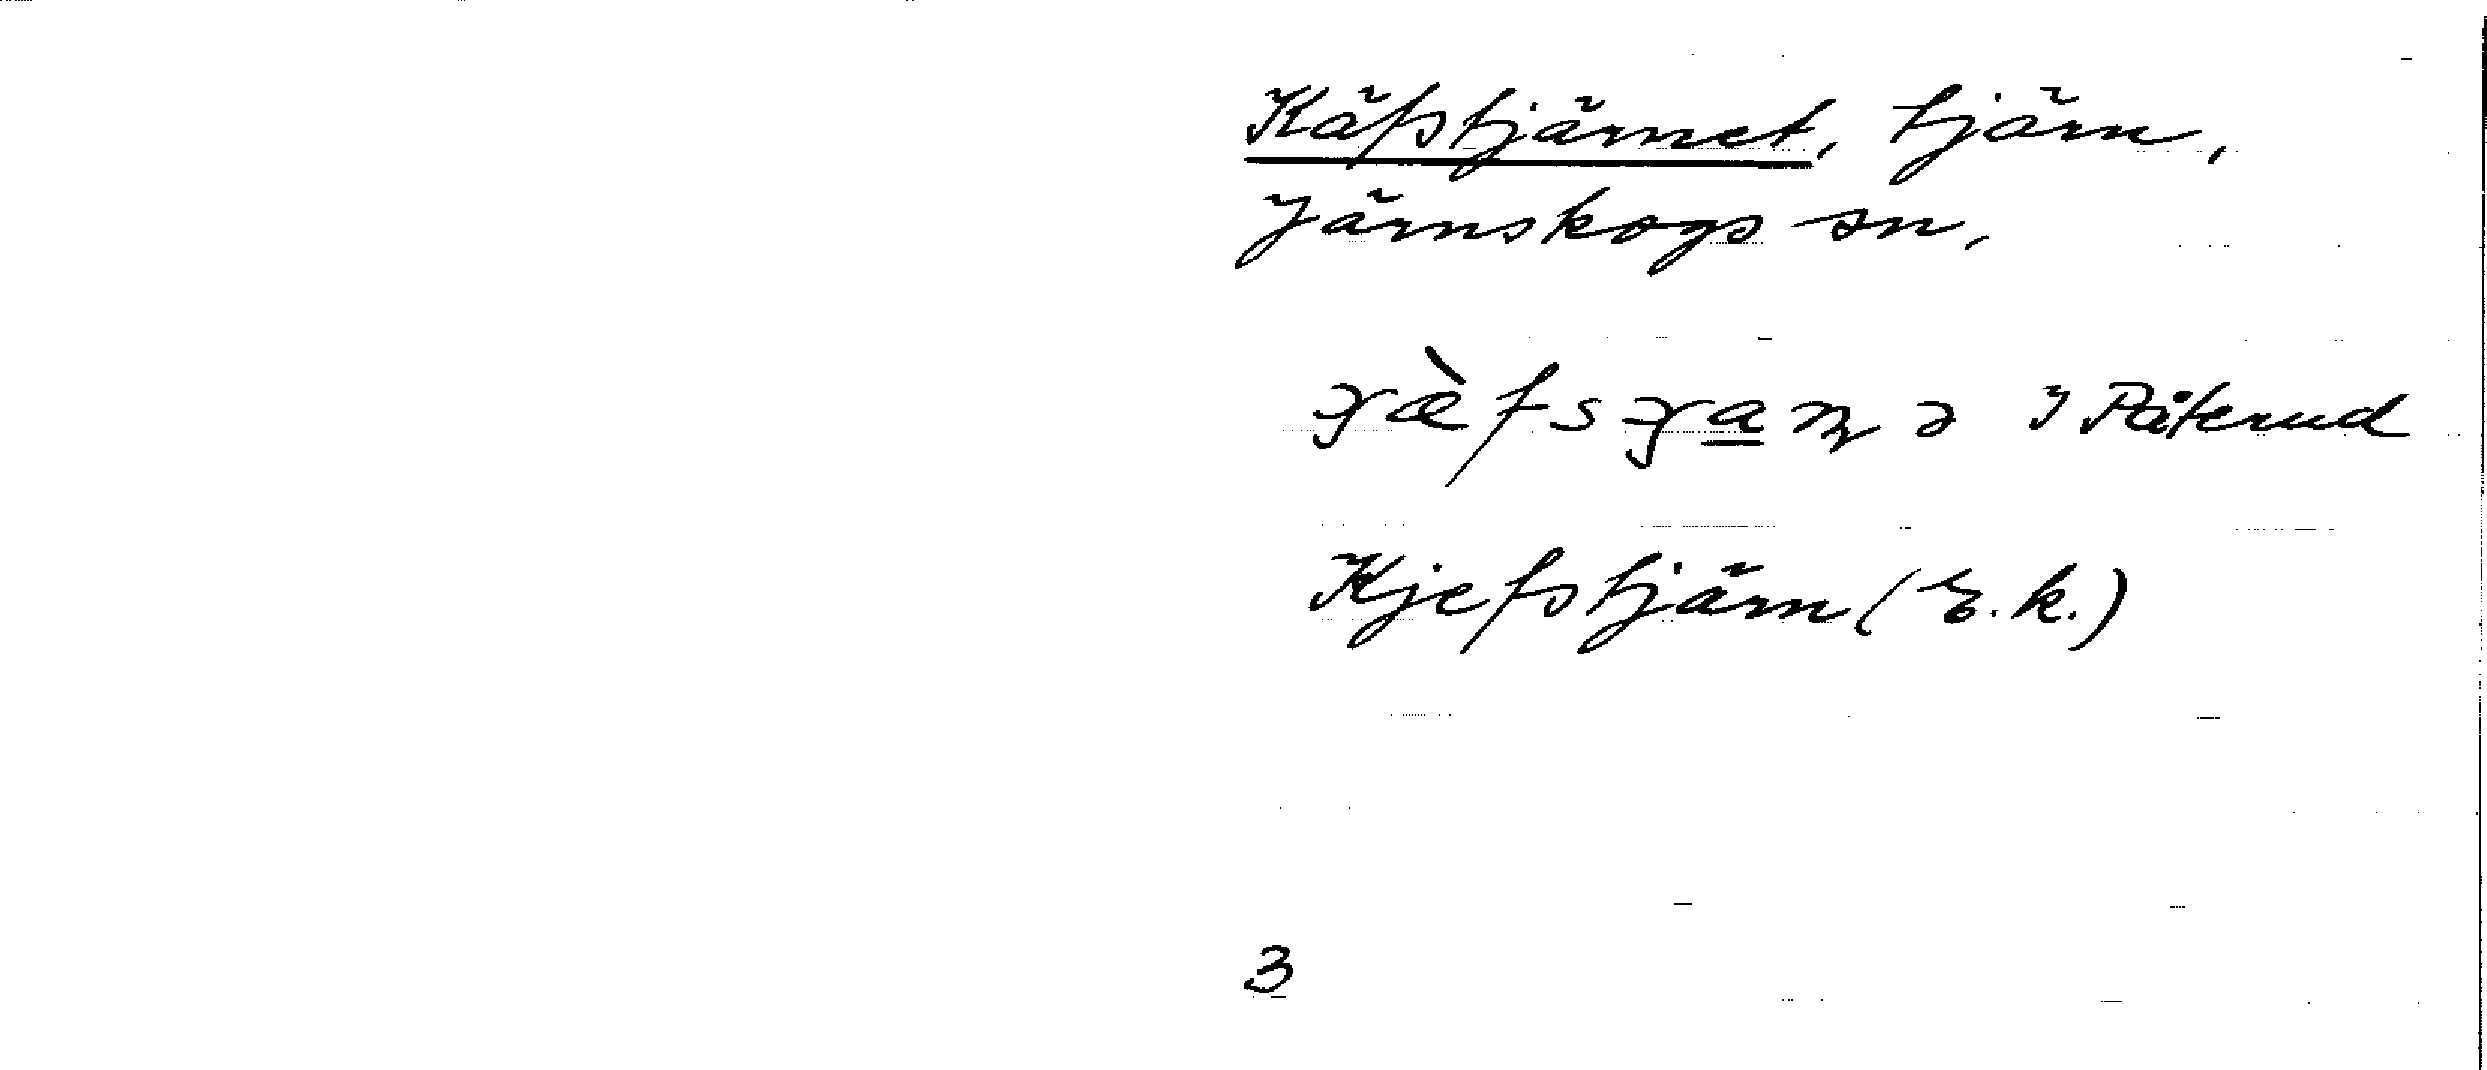 Käfstjärnet, tjärn,
Järnskogs sn.
I Påterud
Kjefstjärn (E.k.)
3